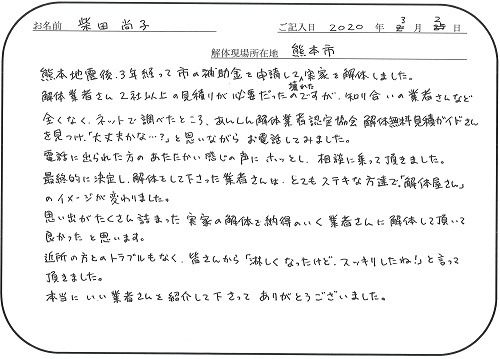 お名前 柴田 尚子 ご記入日 2020 年 3 月 2 日
解体現場所在地 熊本市
熊本地震後、3年経って市の補助金を申請して、壊れた実家を解体しました。
解体業者さん 2社以上の見積りが必要だったのですが、知り合いの業者さんなど
全くなく、ネットで調べたところ、あんしん解体業者認定協会 解体無料見積ガイドさん
を見つけ、「大丈夫かな…?」と思いながら お電話してみました。
電話に出られた方の あたたかい感じの声に ホッとし、相談に乗って頂きました。
最終的に決定し、解体をして下さった業者さんは、とても ステキな方達で、「解体屋さん」
のイメージが変わりました。
思い出がたくさん詰まった 実家の解体を納得のいく業者さんに解体して頂いて
良かったと思います。
近所の方とのトラブルもなく、皆さんから「淋しくなったけど、スッキリしたね!」と言って
頂きました。
本当に いい業者さんを紹介して下さって ありがとうございました。